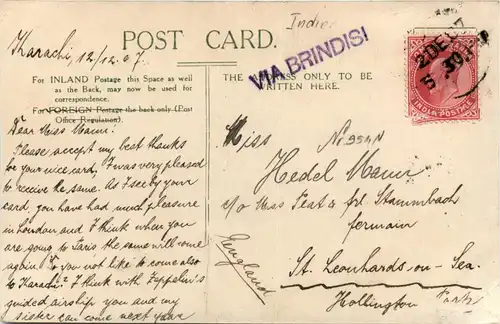 India
Karachi, 12/12.07.
POST CARD.
VIA BRINDISI
2 DE 07
INDIA POSTAGE
For INLAND Postage this Space as well
as the Back, may now be used for
correspondence.
For FOREIGN Postage the back only (Post
Office Regulation).
THE ADDRESS ONLY TO BE
WRITTEN HERE.
Dear Miss Mann!
Please accept my best thanks
for your nice card, I was very pleased
to receive the same. As I see by your
card, you have had much pleasure
in London and I think when you
are going to Paris the same will come
again. Do you not like to come also
to Karachi? I think with Zeppelin's
guided airship you and my
sister can come next year
Miss
Hedel Mann
c/o Miss Peat & frl Stammbach
St. Leonhards-on-Sea.
Hollington Park
England